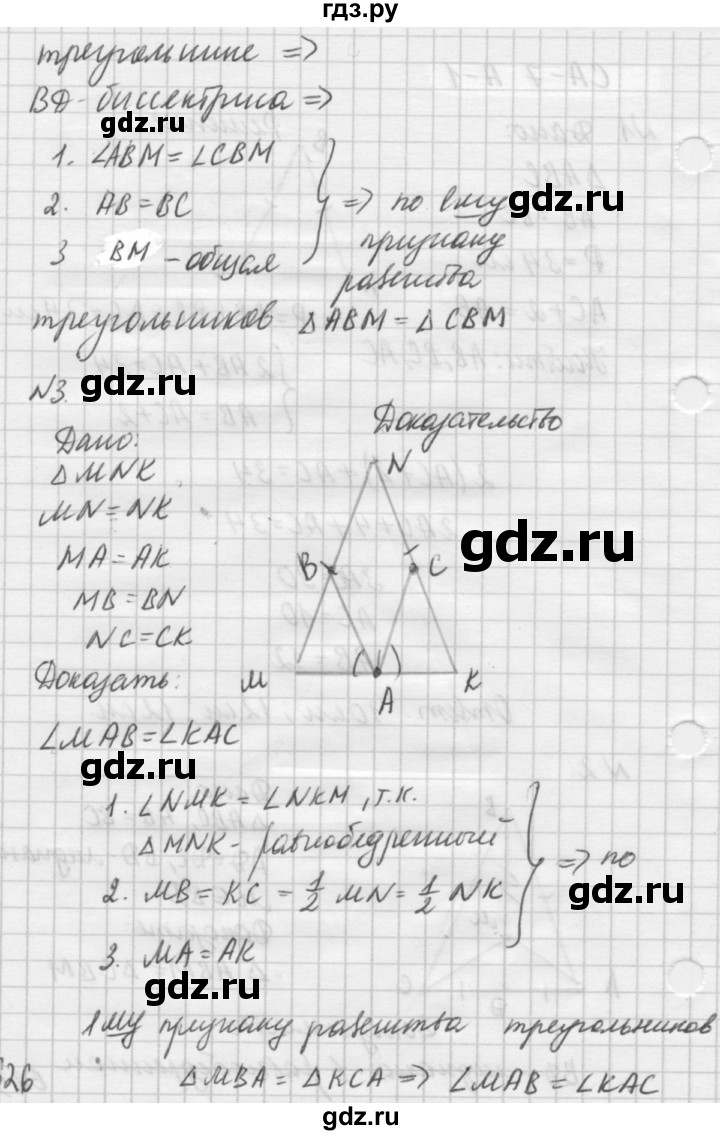 гдз.ру
треугольнике =>
BD - биссектриса =>
gdz.ru
1. ∠ABM = ∠CBM
2. AB = BC
3 BM - общая
=> по 1му
gdz.ru
признаку
равенства
треугольников △ABM = △CBM
N3.
gdz.ru
Доказательство
Дано:
△MNK,
MN = NK
MA = AK
MB = BN
NC = CK
N
B
C
M
A
K
gdz.ru
Доказать:
∠MAB = ∠KAC
gdz.ru
1. ∠NMK = ∠NKM, т.к.
△MNK - равнобедренный
2. MB = KC = 1/2 MN = 1/2 NK
3. MA = AK
=> по
gdz.ru
gdz.ru
1му признаку равенства треугольников
△MBA = △KCA => ∠MAB = ∠KAC
26
gdz.ru